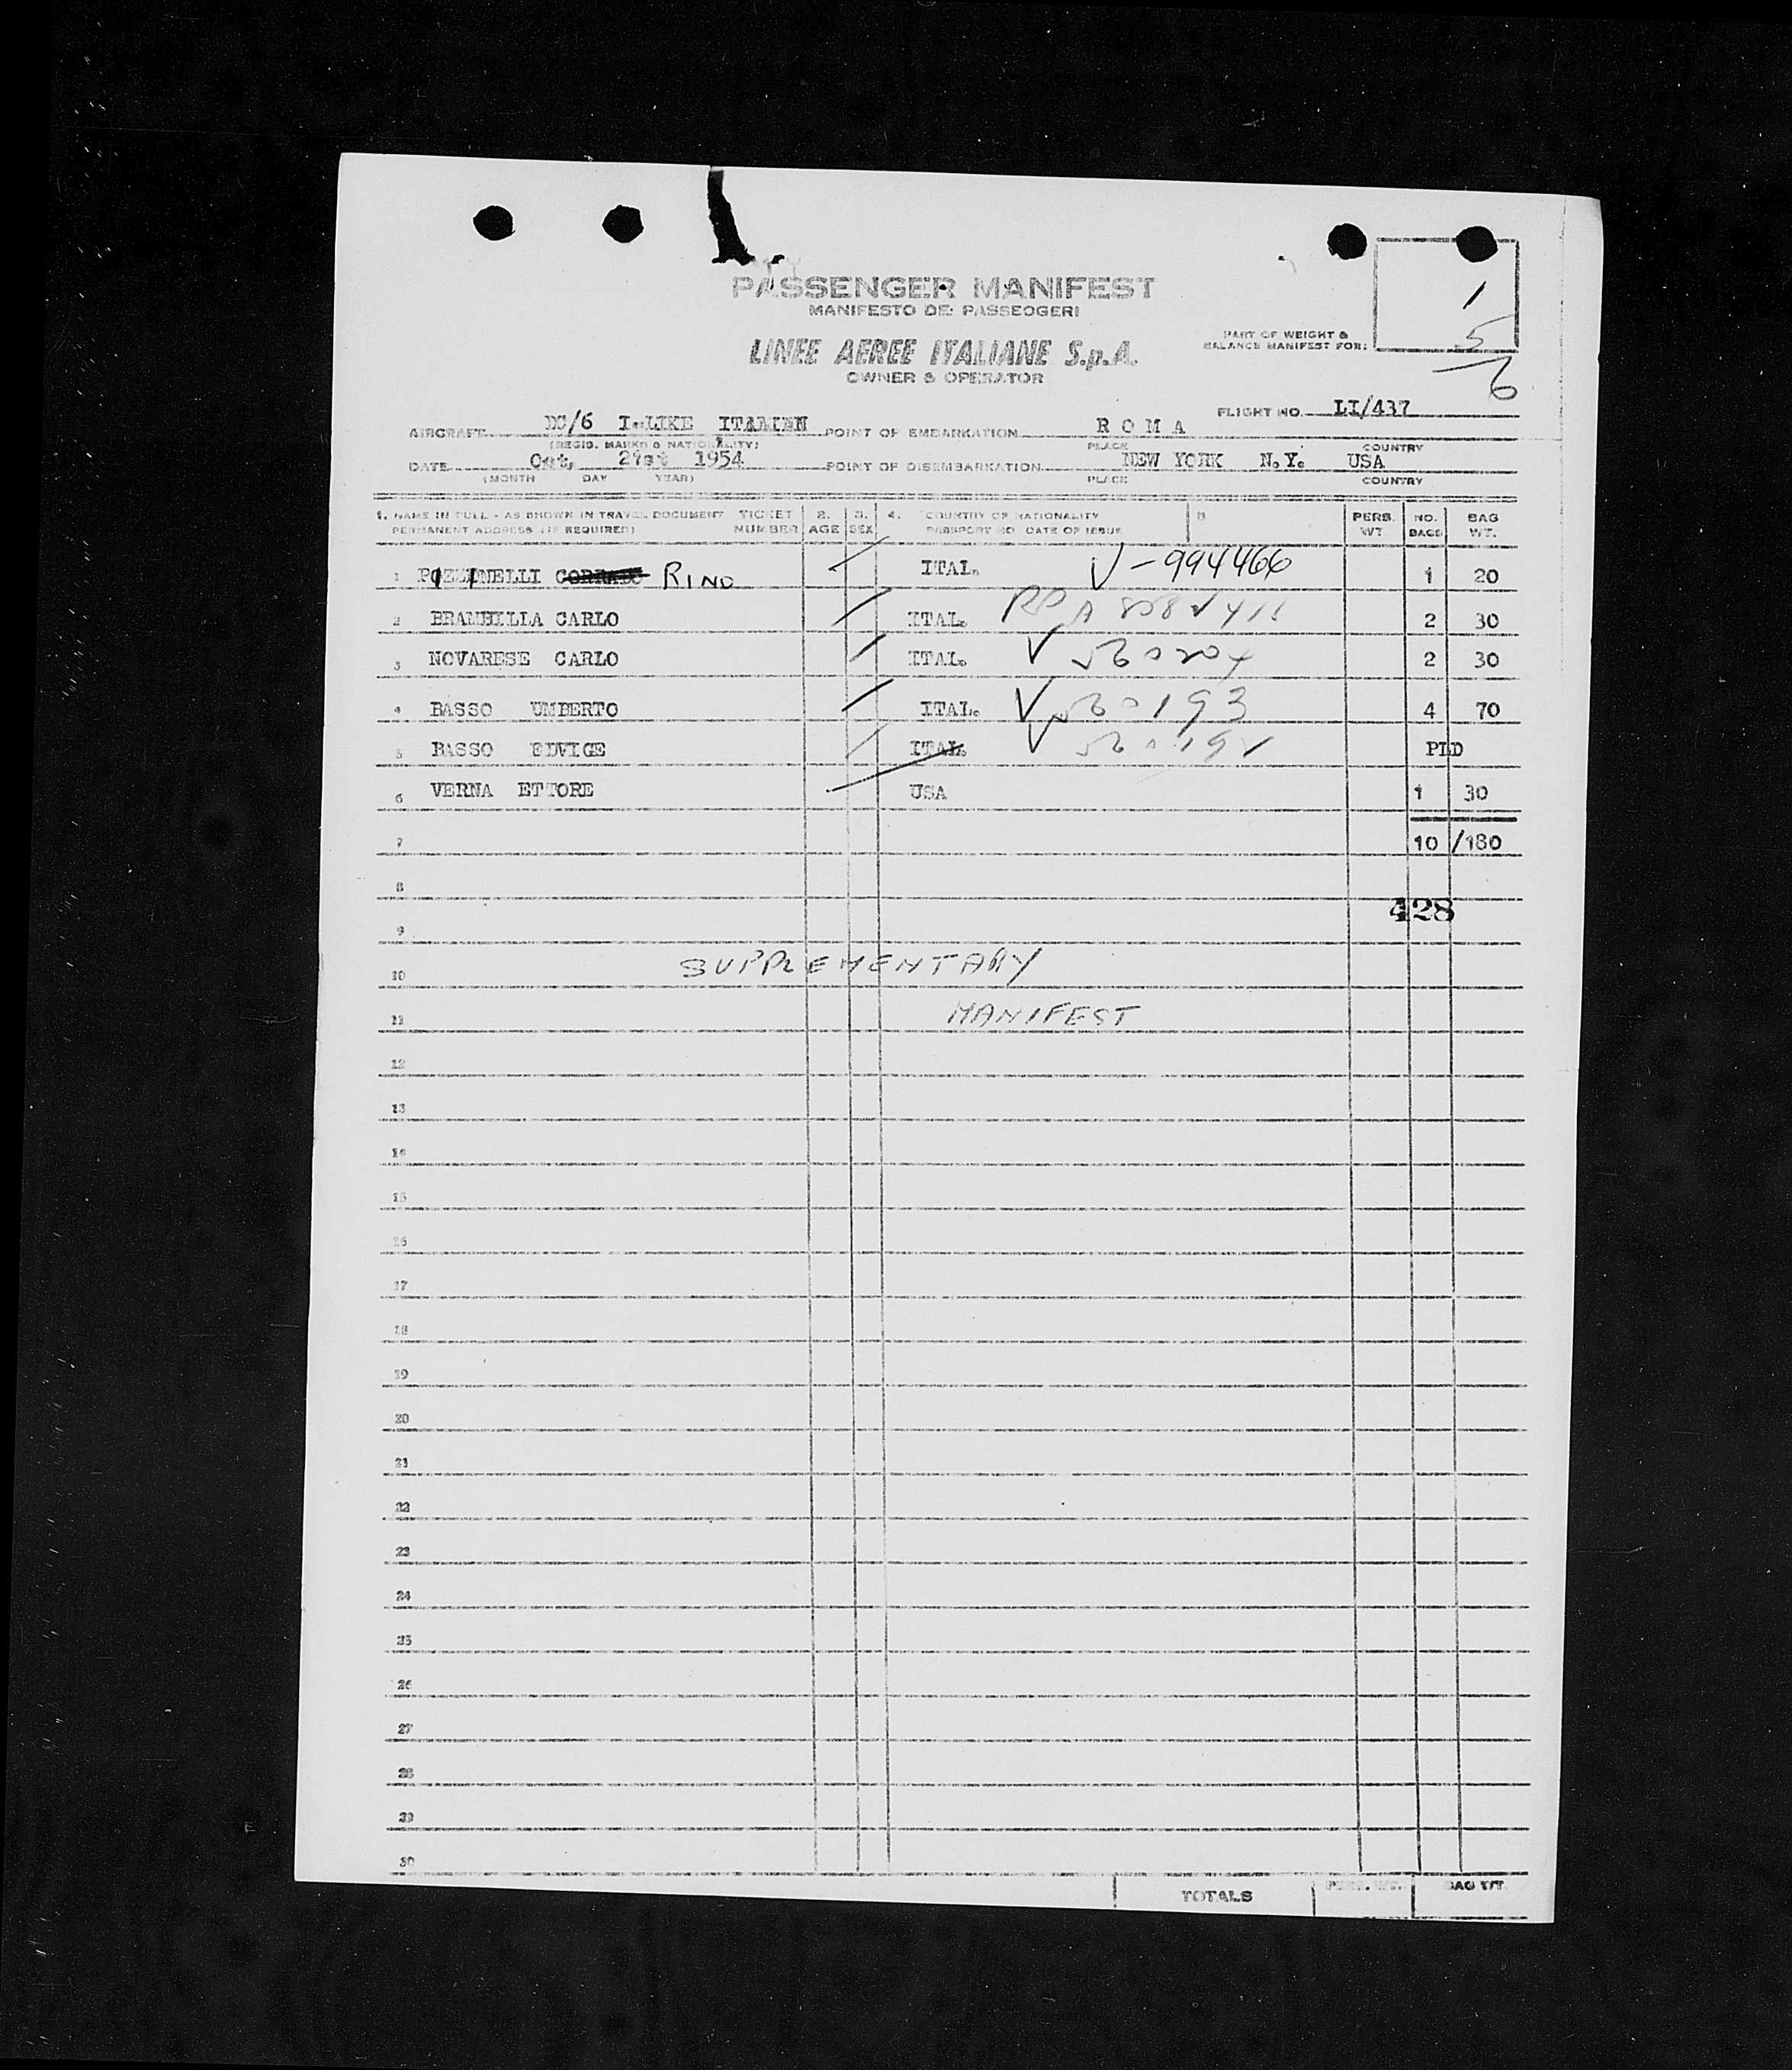 PASSENGER MANIFEST
MANIFESTO DEI PASSEGGERI
LINEE AEREE ITALIANE S.p.A.
OWNER & OPERATOR
PART OF WEIGHT &
BALANCE MANIFEST FOR:
1
5
6
FLIGHT NO. LI/437
AIRCRAFT DC/6 I-LIKE ITALIEN POINT OF EMBARKATION R O M A
(REGIS. MARKS & NATIONALITY) PLACE COUNTRY
DATE Oct, 21st 1954 POINT OF DISEMBARKATION NEW YORK N.Y. USA
(MONTH DAY YEAR) PLACE COUNTRY
1. NAME IN FULL - AS SHOWN IN TRAVEL DOCUMENT TICKET 2. 3. 4. COUNTRY OF NATIONALITY 5 PERS. NO. BAG
PERMANENT ADDRESS (IF REQUIRED) NUMBER AGE SEX PASSPORT NO. DATE OF ISSUE WT. BAGS WT.
1 CORRADO RINO ITAL. V-994466 1 20
2 BRAMBILLA CARLO ITAL. 2 30
3 NOVARESE CARLO ITAL. V 2 30
4 BASSO UMBERTO ITAL. V 4 70
5 BASSO EDVIGE ITAL. V PLD
6 VERNA ETTORE USA 1 30
7 10 /180
8
428
9
10 SUPPLEMENTARY
11 MANIFEST
12
13
14
15
16
17
18
19
20
21
22
23
24
25
26
27
28
29
30
TOTALS PERS. WT. BAG WT.